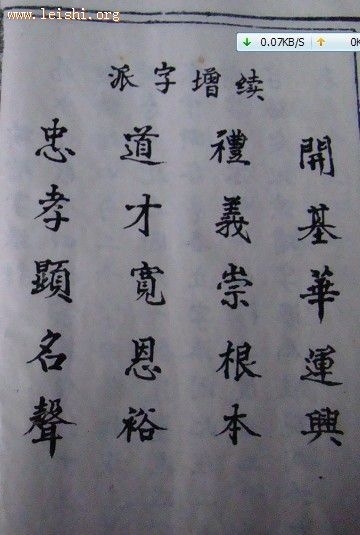 www.leishi.org
0.07KB/S
0K
续增字派
開基華運興
禮義崇根本
道才寬恩裕
忠孝顯名聲